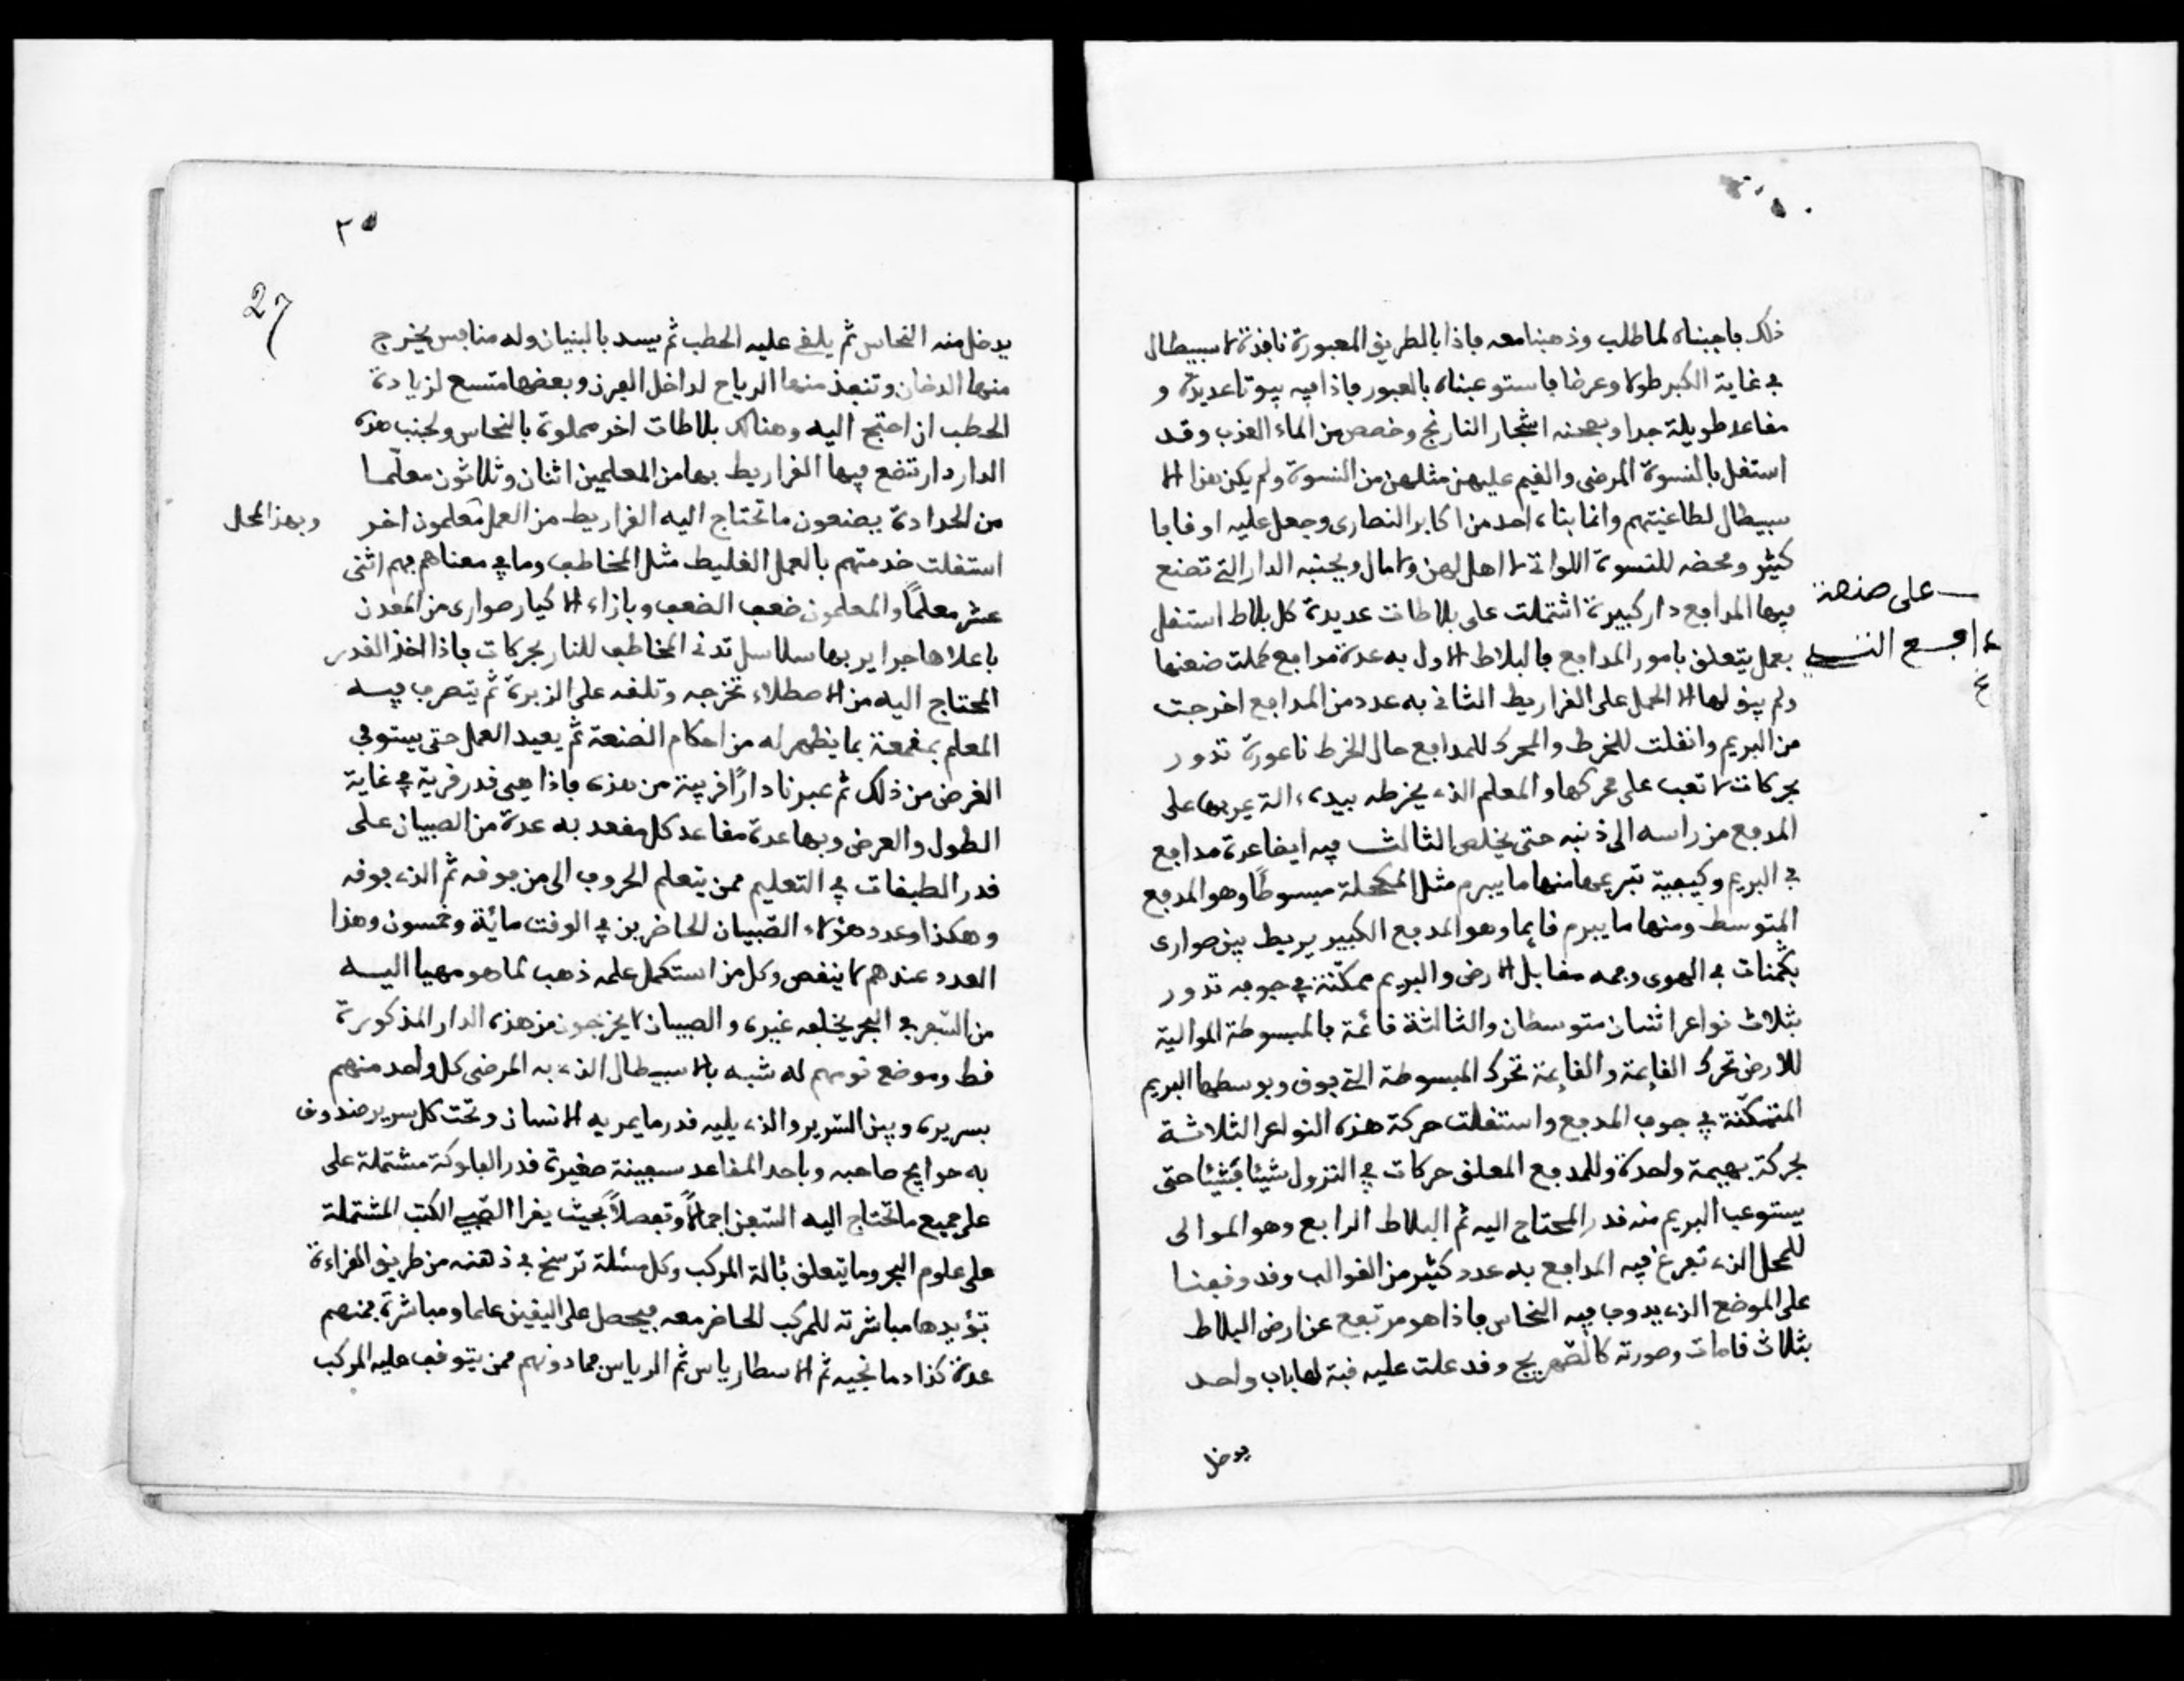 ذلك فاجبناه لما طلب وذهبنا معه فاذا بالطريق المعبورة نافذة لاسبيطال
في غاية الكبر طولا وعرضا فاستوعبناه بالعبور فاذا فيه بيوتا عديدة و
مقاعد طويلة جدا وبصحنه اشجار النارنج وخصص من الماء العذب وقد
استقل بالنسوة المرضى والقيم عليهن مثلهن من النسوة ولم يكن هذا الا
سبيطال لطاغيتهم وانما بناه احد من اكابر النصارى وجعل عليه اوقافا
كثير ومحضه للنسوة اللواتي لا اهل لهن ولا مال وبجنبه الدار التي تصنع
على صنعة
فيها المدافع دار كبيرة اشتملت على بلاطات عديدة كل بلاط استقل
بعمل يتعلق بامور المدافع فالبلاط الاول به عدة مدافع كملت صنعتها
ولم يبق لها الا الحمل على القراريط الثاني به عدد من المدافع اخرجت
من البريم وانقلت للخرط والمحرك للمدافع حال الخرط ناعورة تدور
بحركات لا تعب على محركها والمعلم الذي يخرطه بيده الة يمر بها على
المدفع من راسه الى ذنبه حتى يخلص الثالث فيه ايضا عدة مدافع
في البريم وكيفية تبريمها منها ما يبرم مثل المكحلة مبسوطًا وهو المدفع
المتوسط ومنها ما يبرم قايما وهو المدفع الكبير يربط بين صواري
بكمنات في الهوى وفمه مقابل الارض والبريم ممكّنة في جوفه تدور
بثلاث نواعر اثنان متوسطان والثالثة قائمة بالمبسوطة الموالية
للارض تحرك القايمة والقايمة تحرك المبسوطة التي فوق وبوسطها البريم
المتمكّنة في جوف المدفع واستقلت حركة هذه النواعر الثلاثة
بحركة بهيمة واحدة وللمدفع المعلق حركات في النزول شيئا فشيئا حتى
يستوعب البريم منه قدر المحتاج اليه ثم البلاط الرابع وهو الموالى
للمحل الذي تفرغ فيه المدافع به عدد كثير من القوالب وقد وقفنا
على الموضع الذي يدوب فيه النحاس فاذا هو مرتفع عن ارض البلاط
بثلاث قامات وصورته كالصّهريج وقد علت عليه قبة لها باب واحد
يدخل
٢٥
27
يدخل منه النحاس ثم يلقى عليه الحطب ثم يسد بالبنيان وله منافس يخرج
منها الدخان وتنفذ منها الرياح لداخل الفرن وبعضها متسع لزيادة
الحطب ان احتيج اليه وهنالك بلاطات اخر مملوة بالنحاس ولجنب هذه
الدار دار تصنع فيها القراريط بها من المعلمين اثنان وثلاثون معلّمـا
من الحدادة يصنعون ما تحتاج اليه القراريط من العمل معلمون اخر
وبهذا المحل
استقلت خدمتهم بالعمل الغليظ مثل المخاطف وما في معناهم فهم اثنى
عشر معلمًا والمعلمون ضعف الضعف وبازاء الاكيار صواري من المعدن
باعلاها جراير بها سلاسل تدنى المخاطف للنار بحركات فاذا اخذ القدر
المحتاج اليه من الاصطلاء تخرجه وتلقه على الزبرة ثم يتصرف فيـه
المعلم بمقمعة بما يظهر له من احكام الصنعة ثم يعيد العمل حتى يستوفي
الغرض من ذلك ثم عبرنا دارًا قريبة من هذه فاذا هى قدر قرية في غاية
الطول والعرض وبها عدة مقاعد كل مقعد به عدة من الصبيان على
قدر الطبقات في التعليم ممن يتعلم الحروف الى من فوقه ثم الذي فوقه
وهكذا وعدد هؤلاء الصّبيان الحاضرين في الوقت مائة وخمسون وهذا
العدد عندهم لا ينقص وكل من استكمل علمه ذهب لما هو مهيا اليـه
من السّفر في البحر يخلفه غيره والصبيان لا يخرجون من هذه الدار المذكورة
قط وموضع نومهم له شبه بالاسبيطال الذي به المرضى كل واحد منهم
بسريره وبين السّرير والذي يليه قدر ما يمر به الانسان وتحت كل سرير صندوق
به حوايج صاحبه وباحد المقاعد سبعينة صغيرة قدر الفلوكة مشتملة على
على جميع ما تحتاج اليه السّفن اجمالًا وتفصيلاً بحيث يقرا الصّبي الكتب المشتملة
على علوم البحر وما يتعلق بئالة المركب وكل مسئلة ترسخ في ذهنه من طريق القراءة
تؤيدها مباشرته للمركب الحاضر معه فيحصل على اليقين علما ومباشرة فمنهم
عدة كذا دمانجيه ثم الاسطارياس ثم الرياس فما دونهم ممن يتوقف عليه المركب